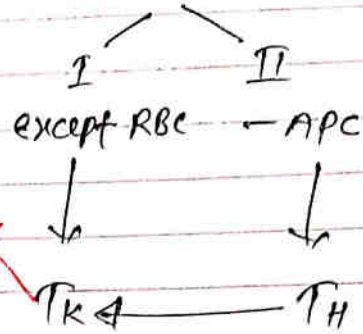 I II
except RBC - APC
TK TH